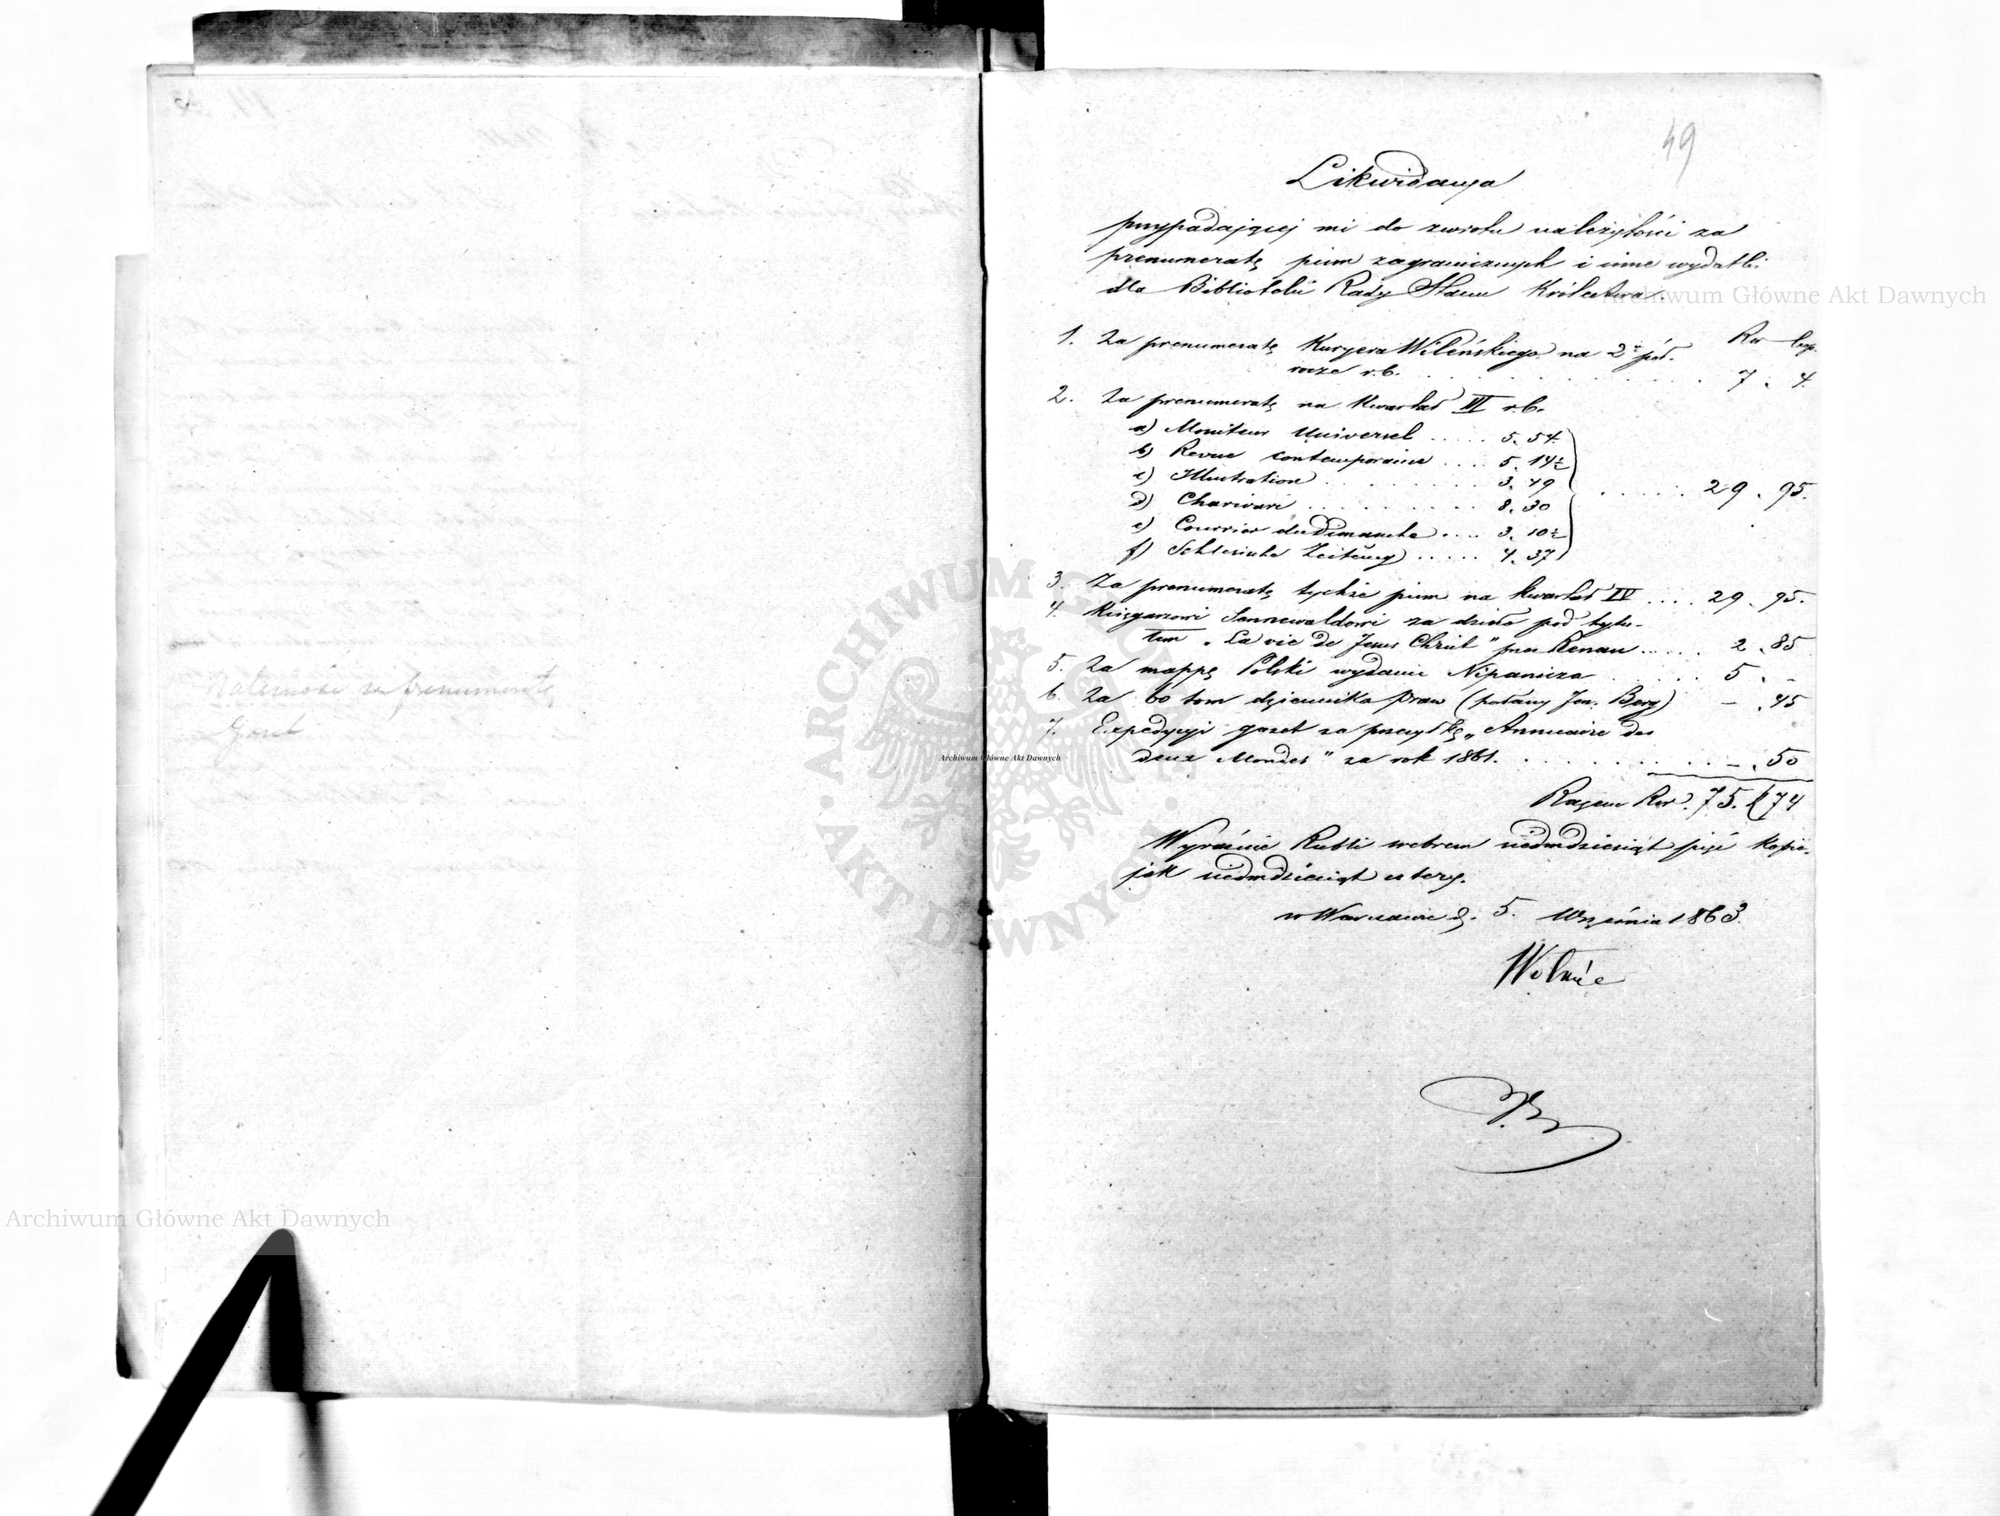 49
Likwidacya
przypadającej mi do zwrotu należytości za
prenumeratę pism zagranicznych i inne wydatki
dla Biblioteki Rady Stanu Królestwa.
Rsr kop.
1. Za prenumeratę Kuryera Wileńskiego na 2ie pół-
rocze r.b. . . . . 7. 4.
2. Za prenumeratę na kwartał III r.b.
a) Moniteur Universel . . . . 5. 54
b) Revue contemporaine . . . . 5. 14½
c) Illustration . . . . 3. 49
d) Charivari . . . . 8. 30
e) Courrier du Dimanche . . . . 3. 10½
f) Schlesische Zeitung . . . . 4. 37
. . . . . 29. 95.
3. Za prenumeratę tychże pism na kwartał IV . . . . 29. 95.
4. Księgarzowi Sennewaldowi za dzieło pod tytu-
łem „La vie de Jesus Christ" przez Renan . . . . 2. 85
5. Za mappę Polski wydanie Nipanicza . . . . 5. -
6. Za 60 tom dziennika praw (pobrany Jen. Berg) - . 45
7. Expedycyi gazet za przesyłkę „Annuaire des
deux Mondes" za rok 1861. . . . . - . 50
Razem Rsr. 75. k 74
Wyraźnie Rubli srebrem siedmdziesiąt pięć kopie-
jek siedmdziesiąt cztery.
w Warszawie d. 5. Września 1863.
Należność za prenumeratę
Gazet
Archiwum Główne Akt Dawnych
Archiwum Główne Akt Dawnych
Archiwum Główne Akt Dawnych
ARCHIWUM GŁÓWNE
AKT DAWNYCH